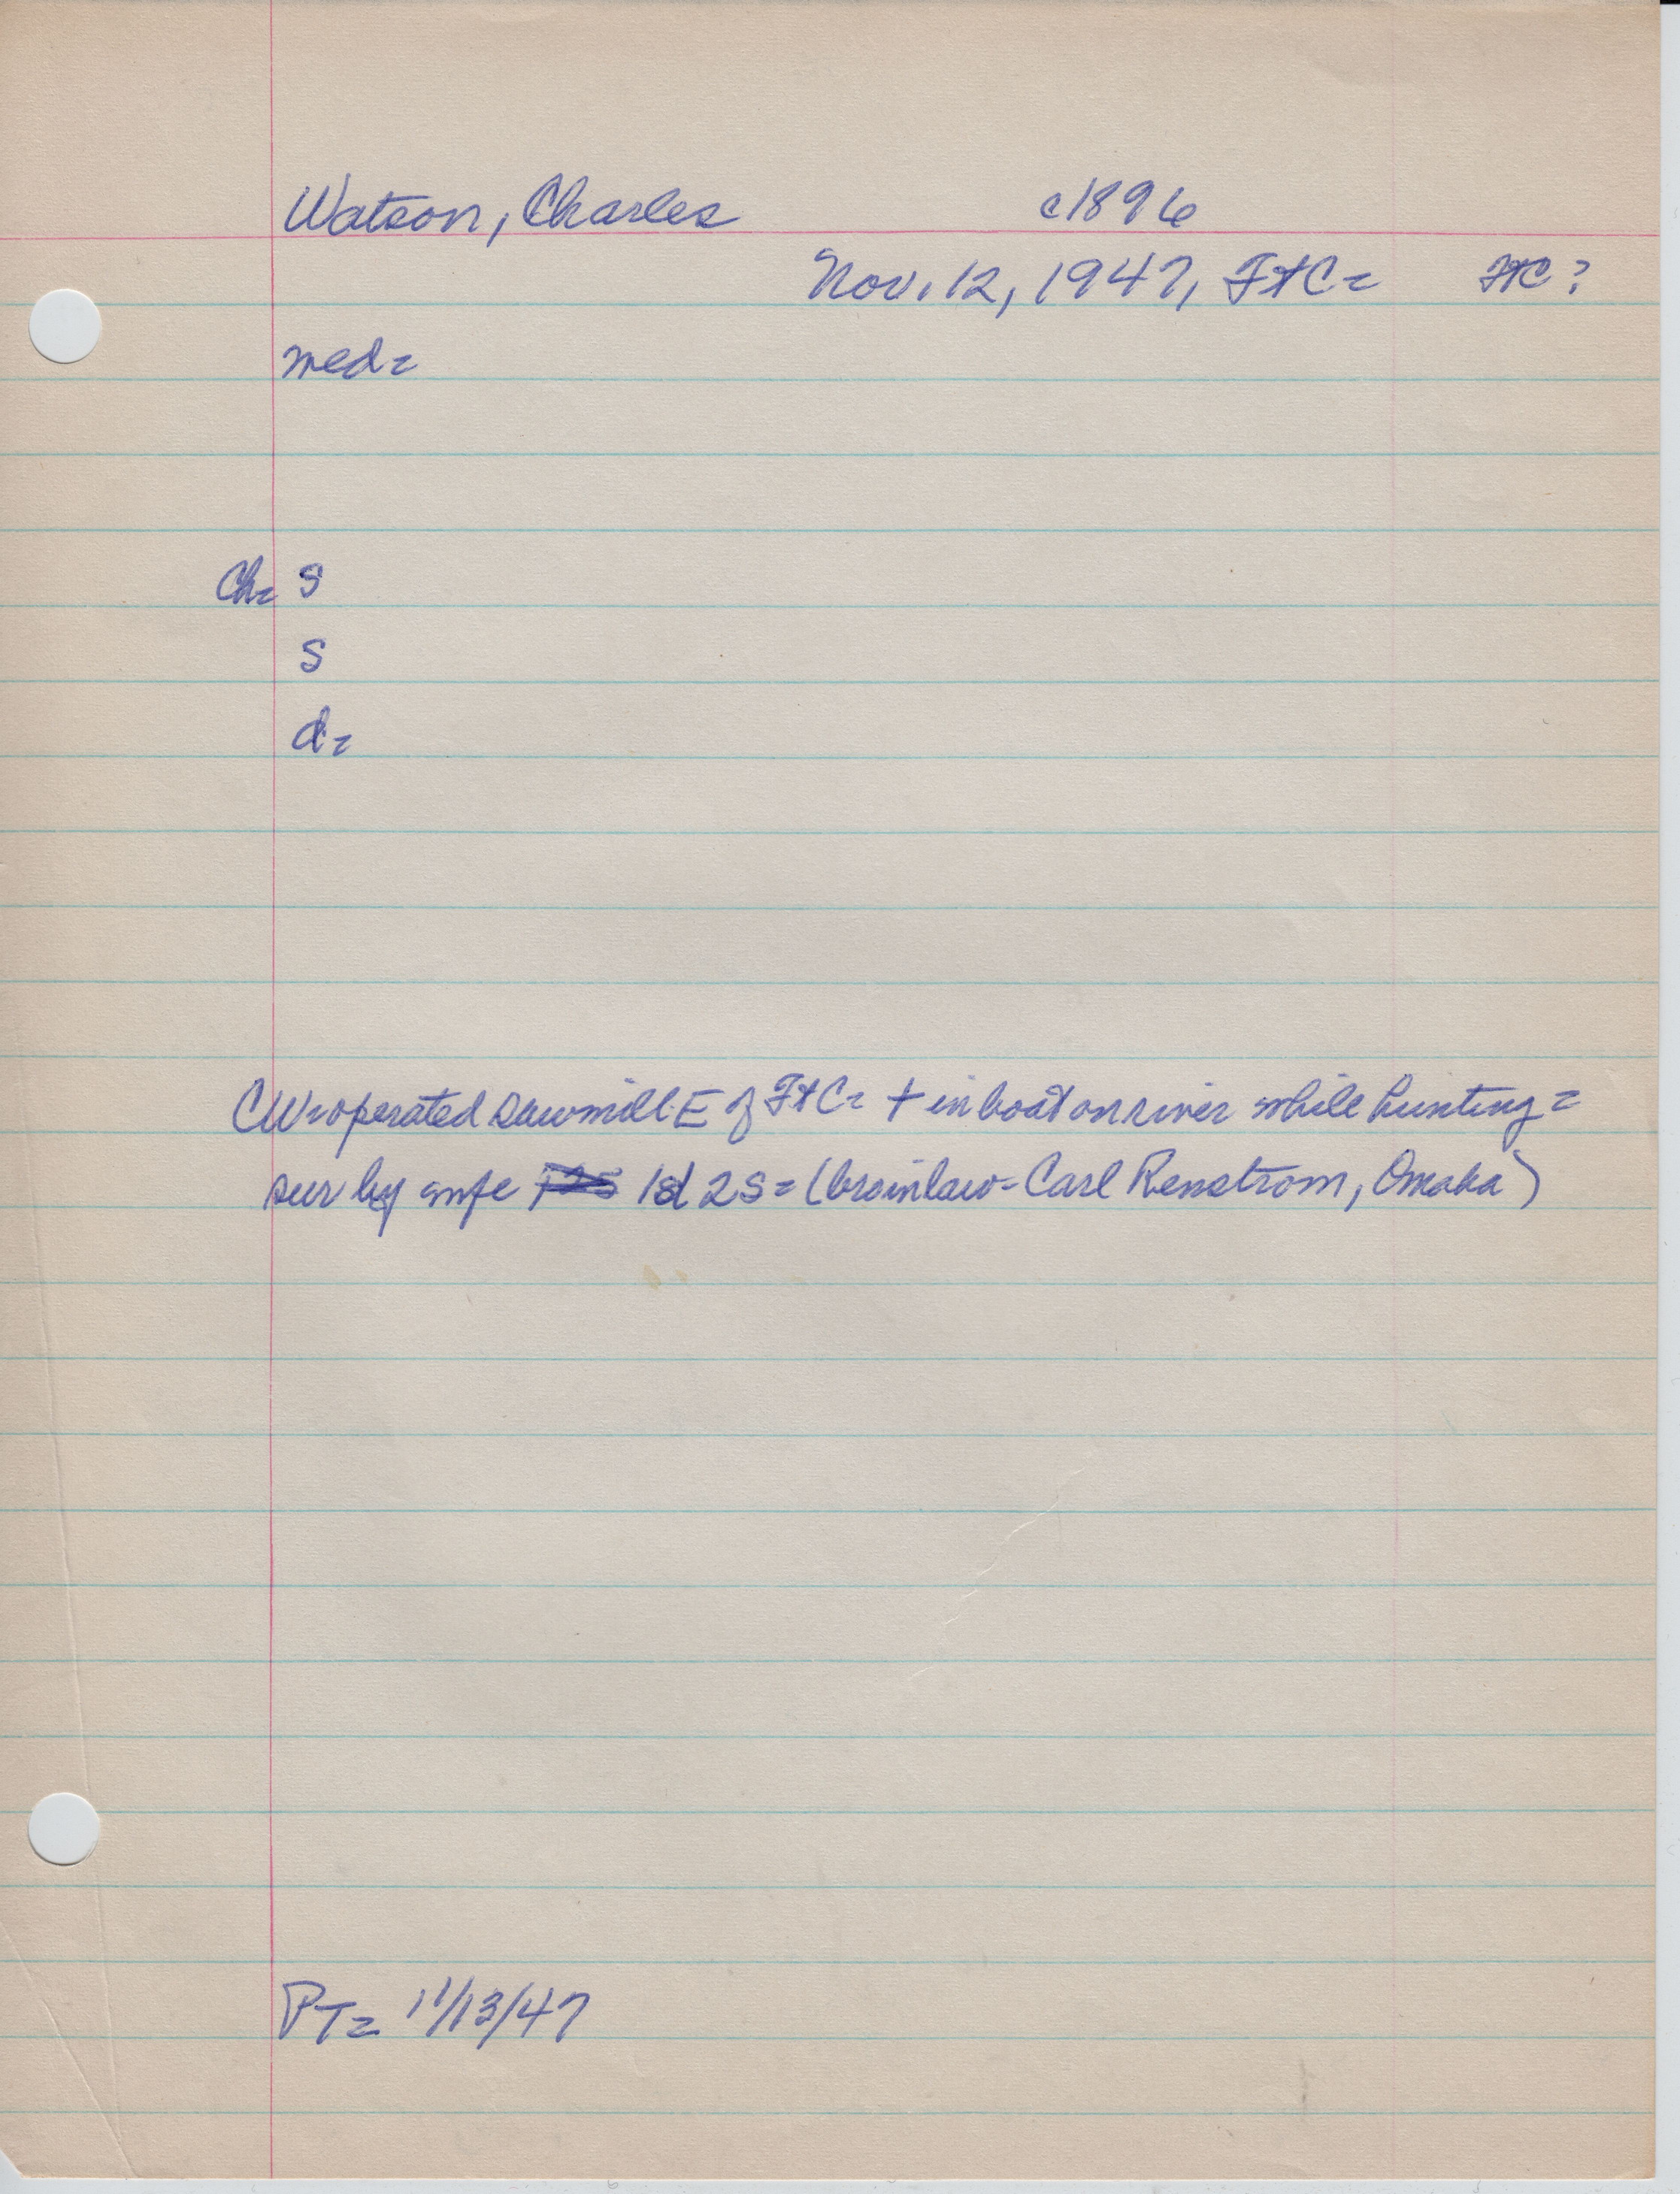 Watson, Charles c1896
Nov. 12, 1947, FtC= FtC?
med=
Ch= s
s
d=
CW=operated sawmill E of FtC= + in boat on river while hunting=
sur by wife 1d 2s= (broinlaw- Carl Renstrom, Omaha)
PT= 11/13/47